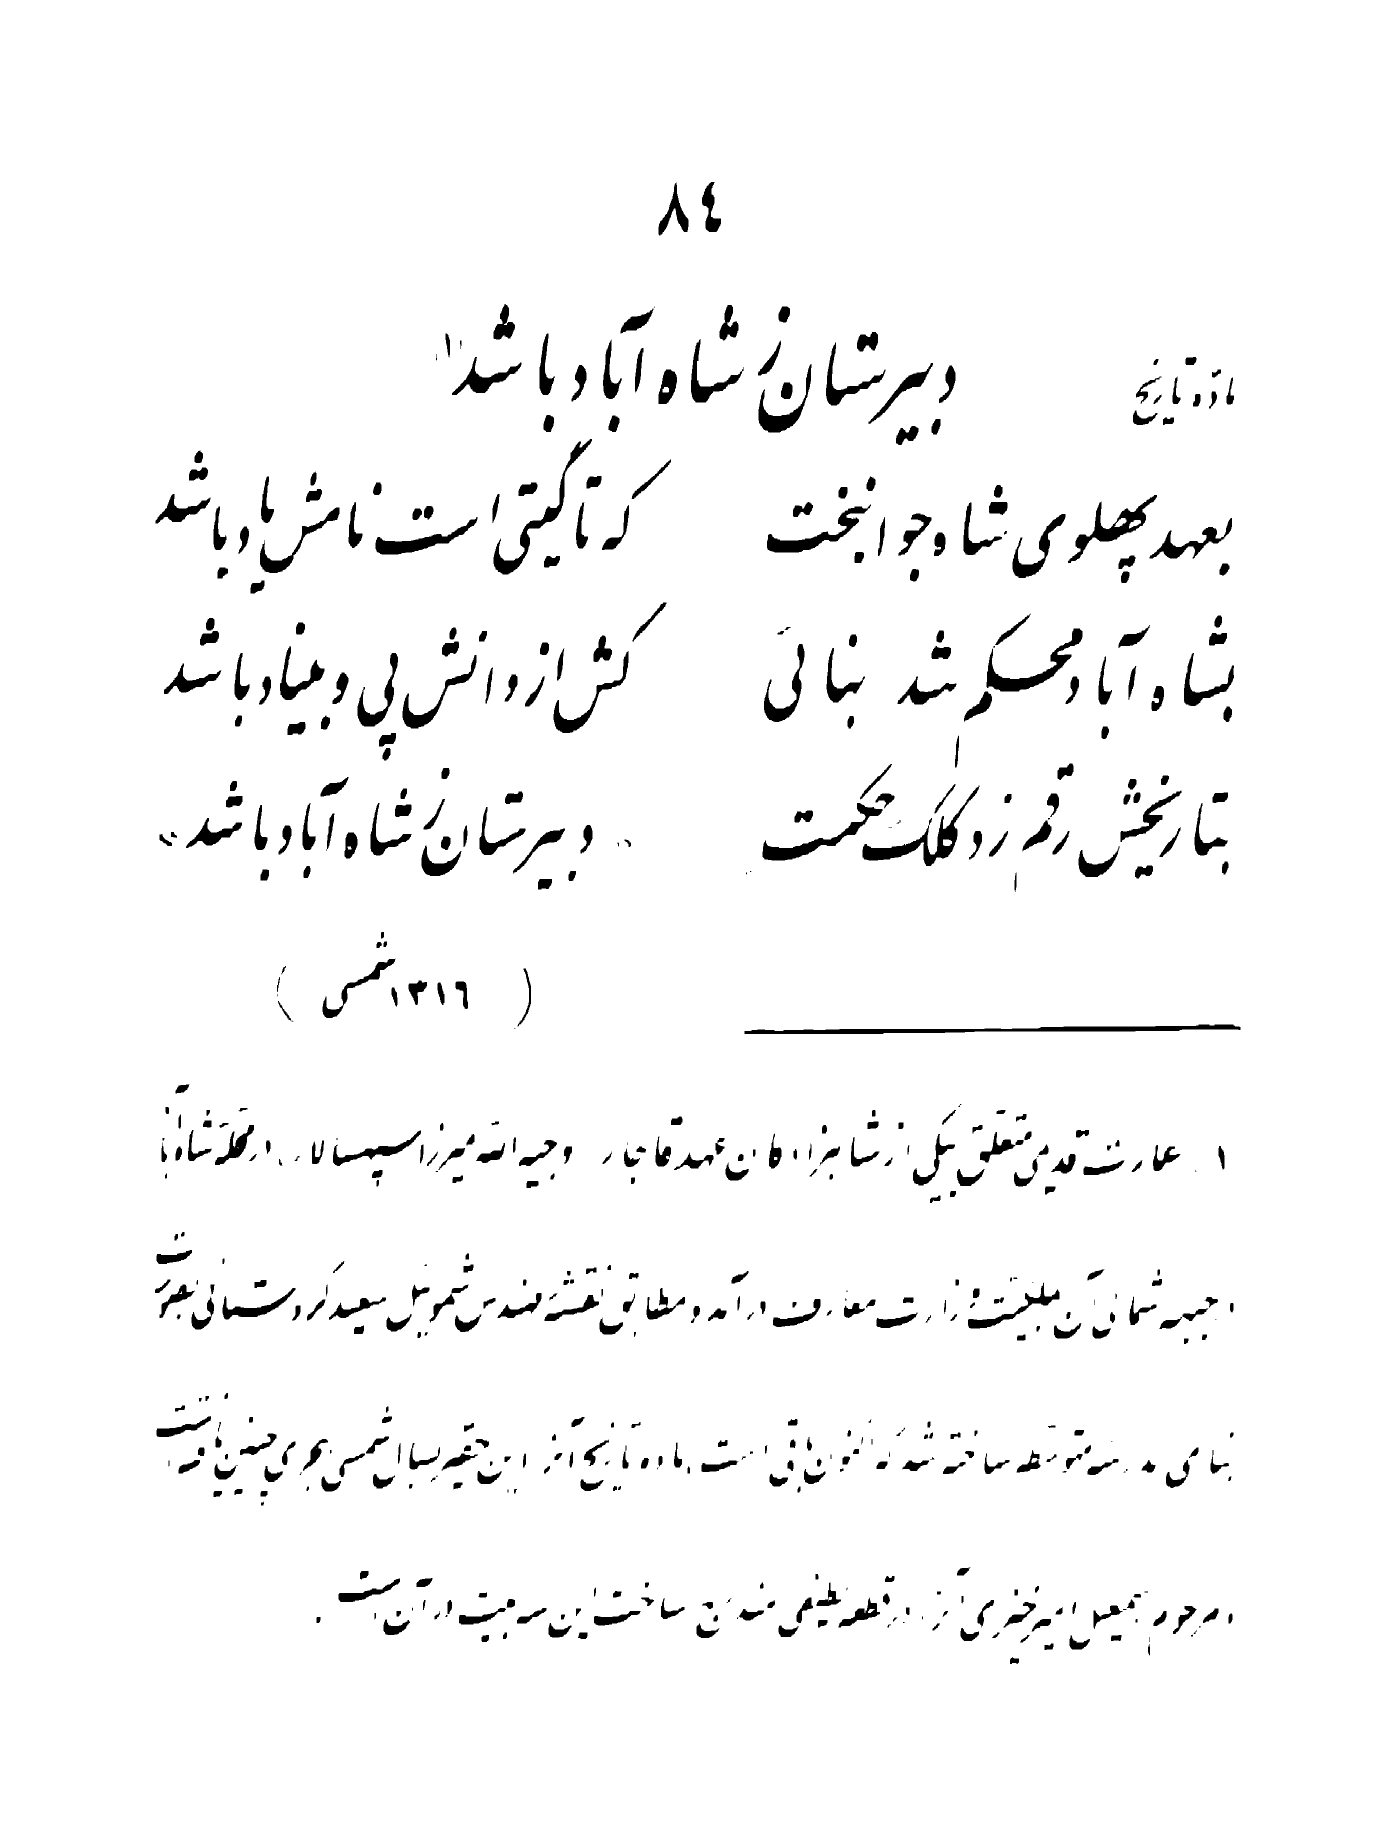 ٨٤
ماده تاریخ دبیرستان ز شاه آباد باشد (۱)
بعهد پهلوی شاه جوانبخت که تا گیتی است نامش یاد باشد
بشاه آباد محکم شد بنائی کش از دانش پی و بنیاد باشد
بتاریخش رقم زد کلک حکمت «دبیرستان ز شاه آباد باشد»
(۱۳۱٦ شمسی)
۱. عمارت قدیمی متعلق بیکی از شاهزادگان عهد قاجار وجیه الله میرزا سپهسالار در محله شاه آباد
و جبهه شمالی آن بملکیت وزارت معارف درآمد و مطابق نقشه مهندس شموئیل سعید کردستانی بصورت
بنای مدرسه متوسطه ساخته شد که اکنون باقی است. ماده تاریخ آنرا این حقیر بسال شمسی هجری چنین یافته است
و مرحوم اسمعیل امیرخیزی آنرا در قطعه لطیفی مندرج ساخت این سه بیت در آن است.